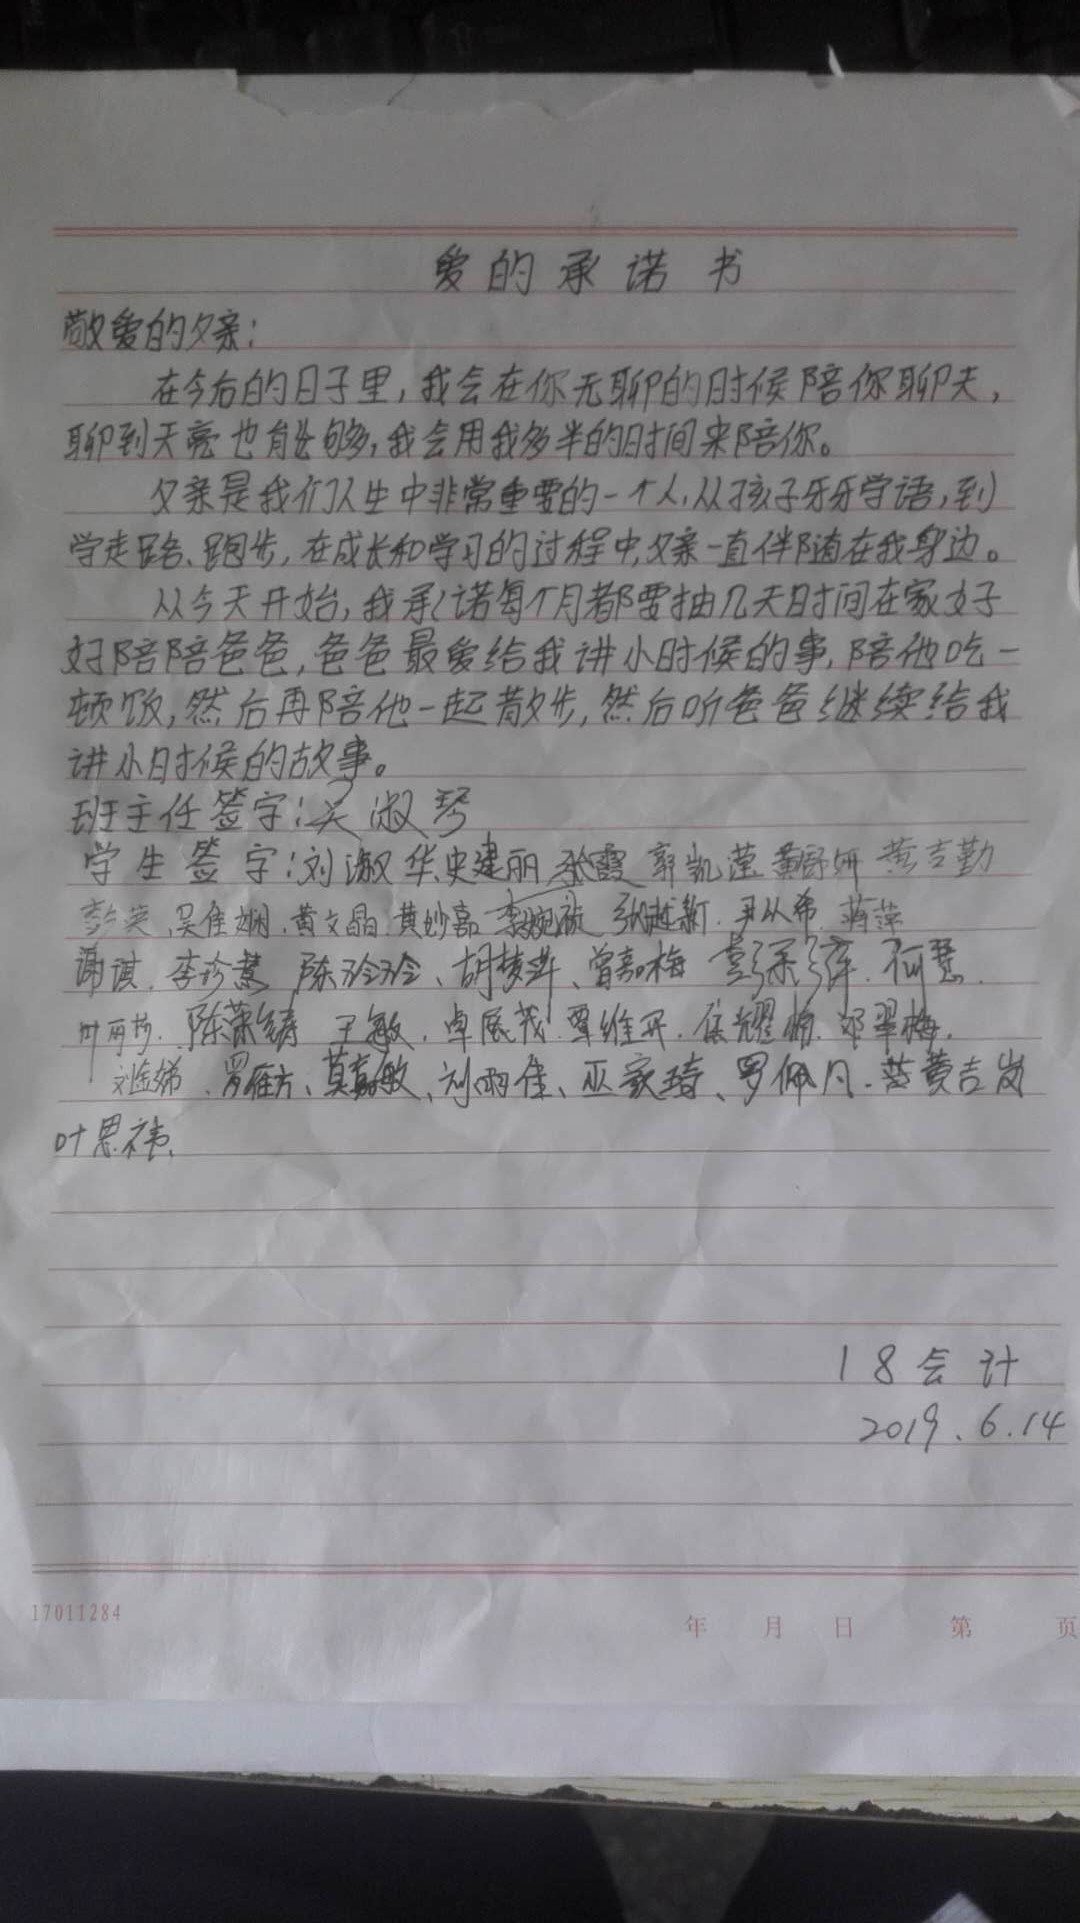 爱的承诺书
敬爱的父亲：
在今后的日子里，我会在你无聊的时候陪你聊天，
聊到天亮也能够，我会用我多半的时间来陪你。
父亲是我们人生中非常重要的一个人，从孩子牙牙学语，到
学走路、跑步，在成长和学习的过程中，父亲一直伴随在我身边。
从今天开始，我承诺每个月都要抽几天时间在家好
好陪陪爸爸，爸爸最爱给我讲小时候的事，陪他吃一
顿饭，然后再陪他一起散步，然后听爸爸继续给我
讲小时候的故事。
班主任签字：吴淑琴
学生签字：刘淑华 史建丽 张霞 郭凯莲 黄舒妍 黄吉勤
彭英、吴佳娴、黄文晶 黄妙嘉 李婉 张越新、尹从希、蒋萍
谢淇、李珍慧 陈玲玲、胡梦萍、曾嘉梅 彭 何慧、
叶丽 陈萧 王敏、卓展茂、覃维开、伍耀楠、邓翠梅、
刘金娣、罗雁方、莫嘉敏、刘雨佳、巫家琦、罗佩凡、黄吉岚
叶思祎、
18会计
2019.6.14
17011284
年 月 日 第 页